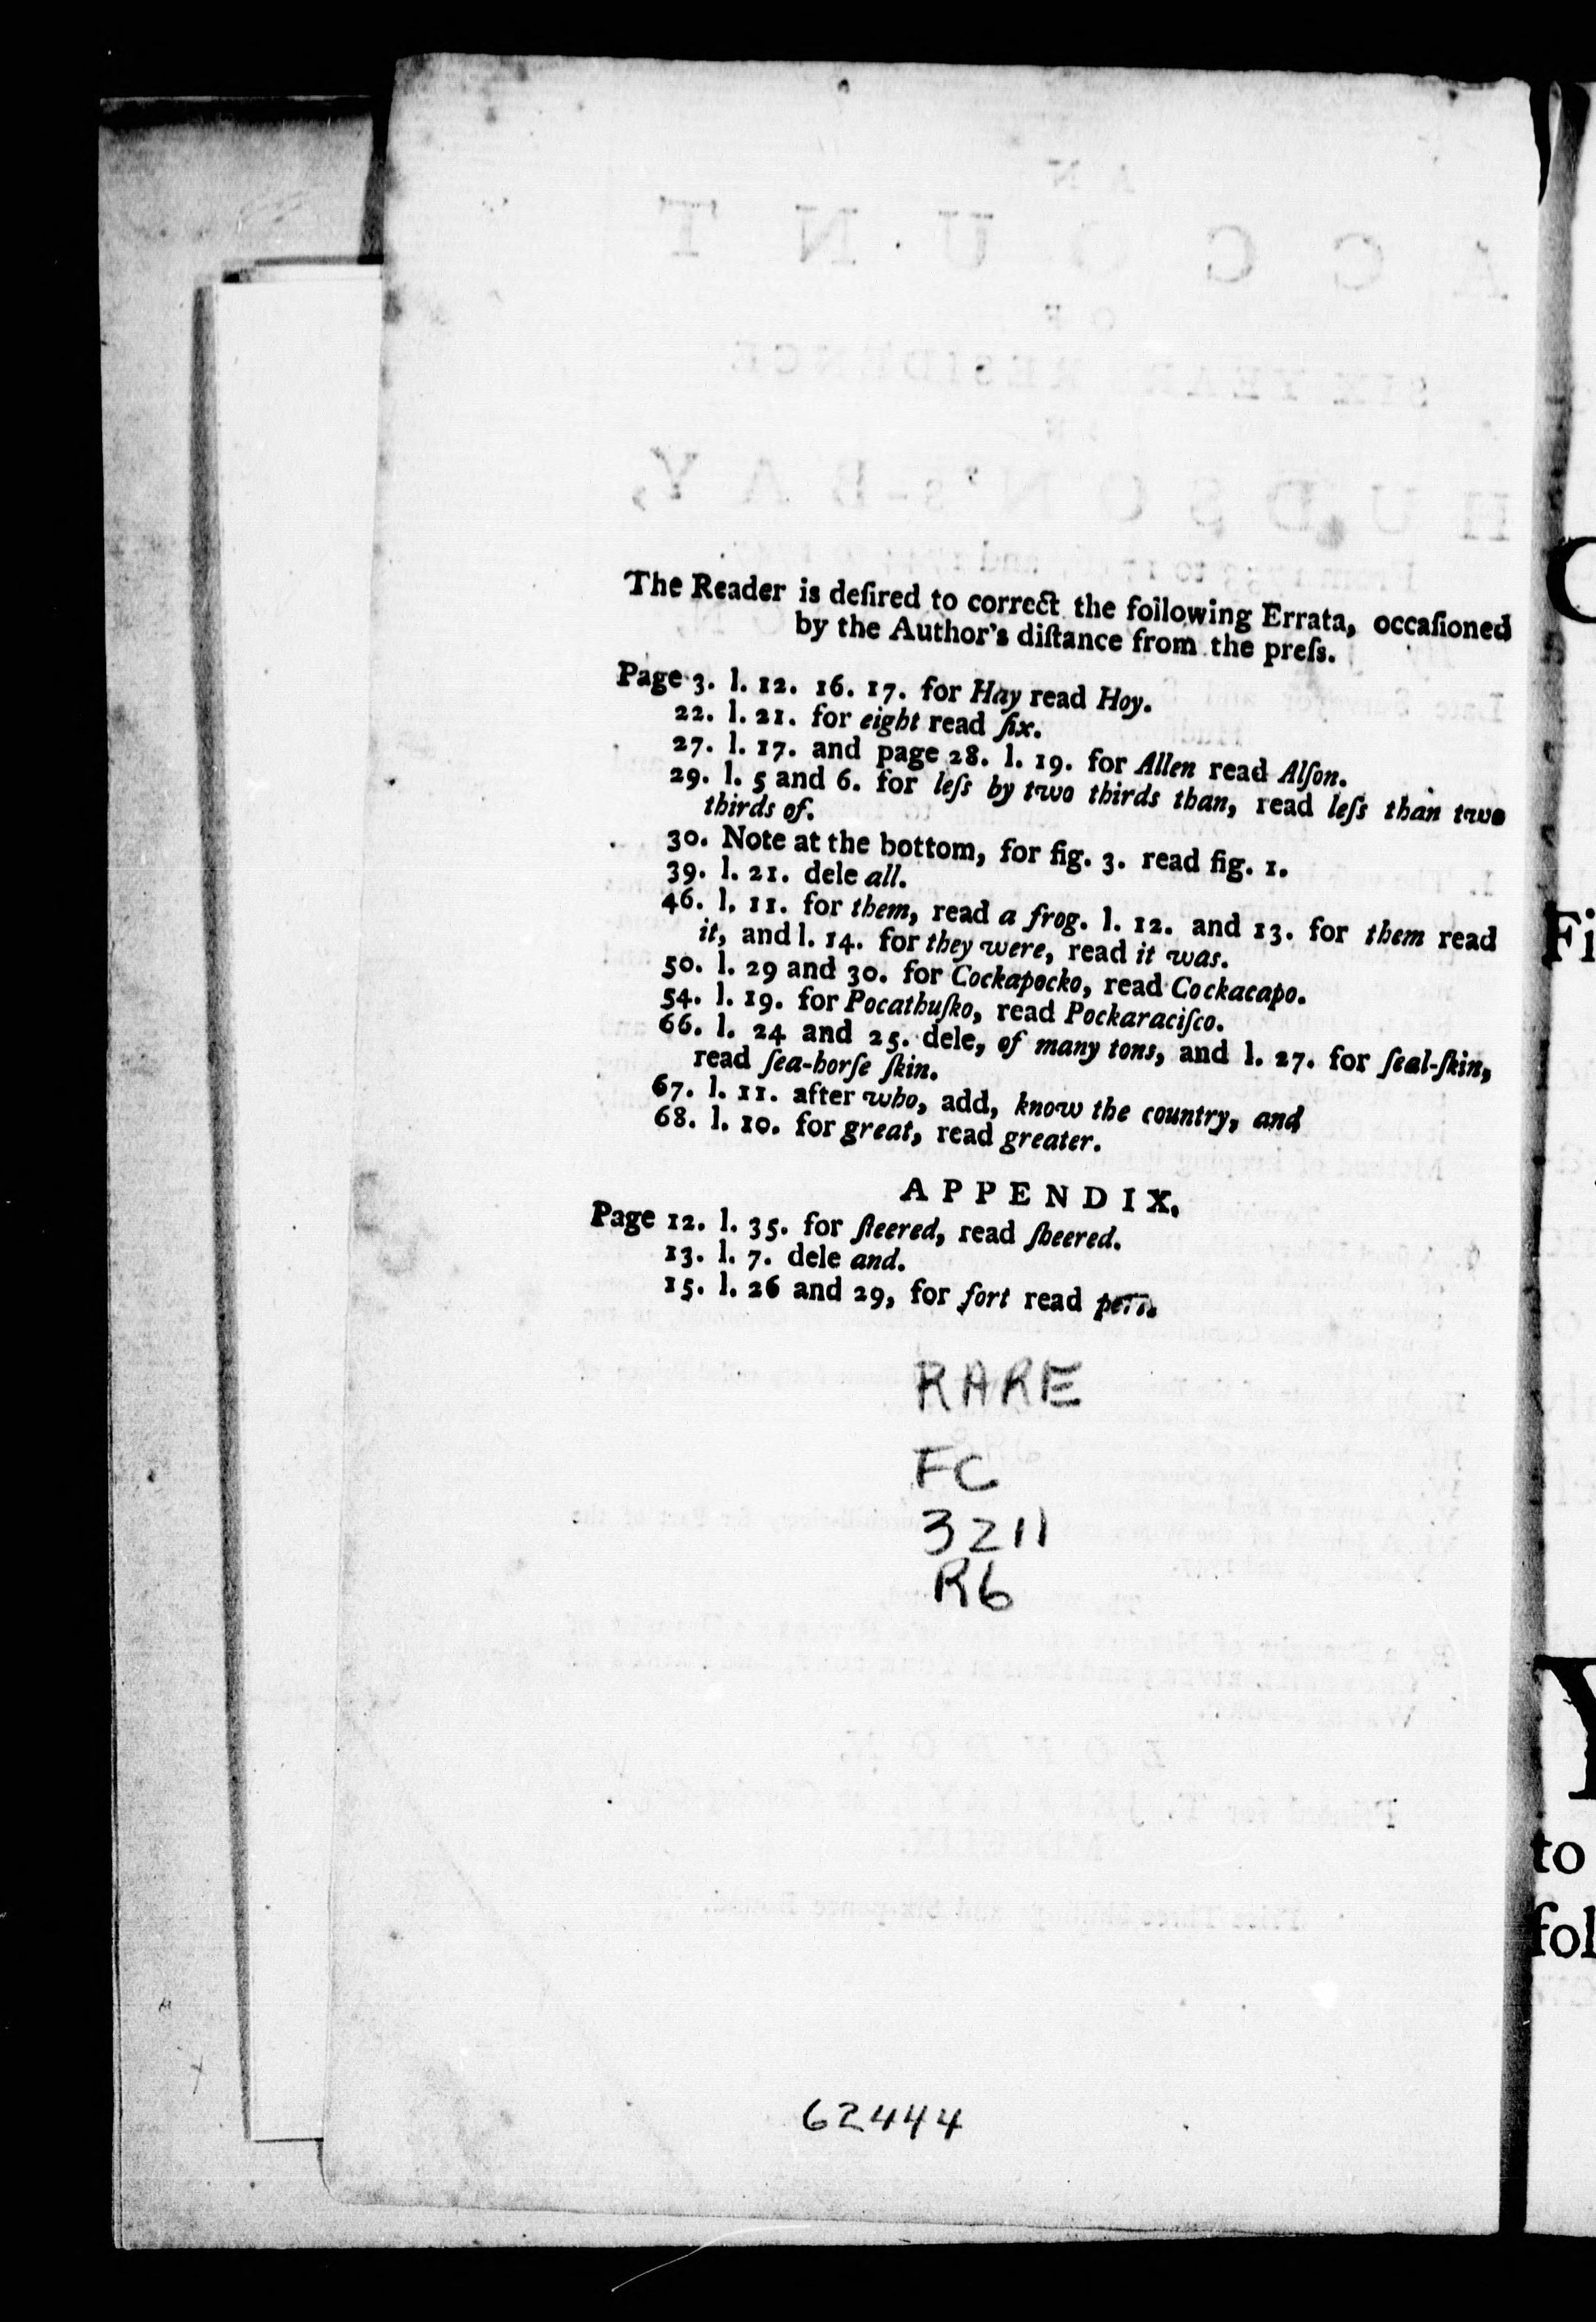 The Reader is deſired to correct the following Errata, occaſioned
by the Author's diſtance from the preſs.
Page 3. l. 12. 16. 17. for Hay read Hoy.
22. l. 21. for eight read ſix.
27. l. 17. and page 28. l. 19. for Allen read Alſon.
29. l. 5 and 6. for leſs by two thirds than, read leſs than two
thirds of.
30. Note at the bottom, for fig. 3. read fig. 1.
39. l. 21. dele all.
46. l. 11. for them, read a frog. l. 12. and 13. for them read
it, and l. 14. for they were, read it was.
50. l. 29 and 30. for Cockapocko, read Cockacapo.
54. l. 19. for Pocathuſko, read Pockaraciſco.
66. l. 24 and 25. dele, of many tons, and l. 27. for ſeal-ſkin,
read ſea-horſe ſkin.
67. l. 11. after who, add, know the country, and
68. l. 10. for great, read greater.
APPENDIX.
Page 12. l. 35. for ſteered, read ſheered.
13. l. 7. dele and.
15. l. 26 and 29, for fort read
RARE
FC
3211
R6
62444
to
fol
Fi